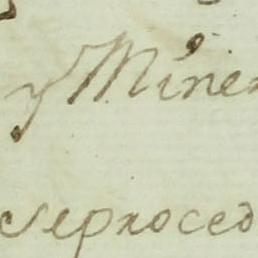 y Miner
se proced